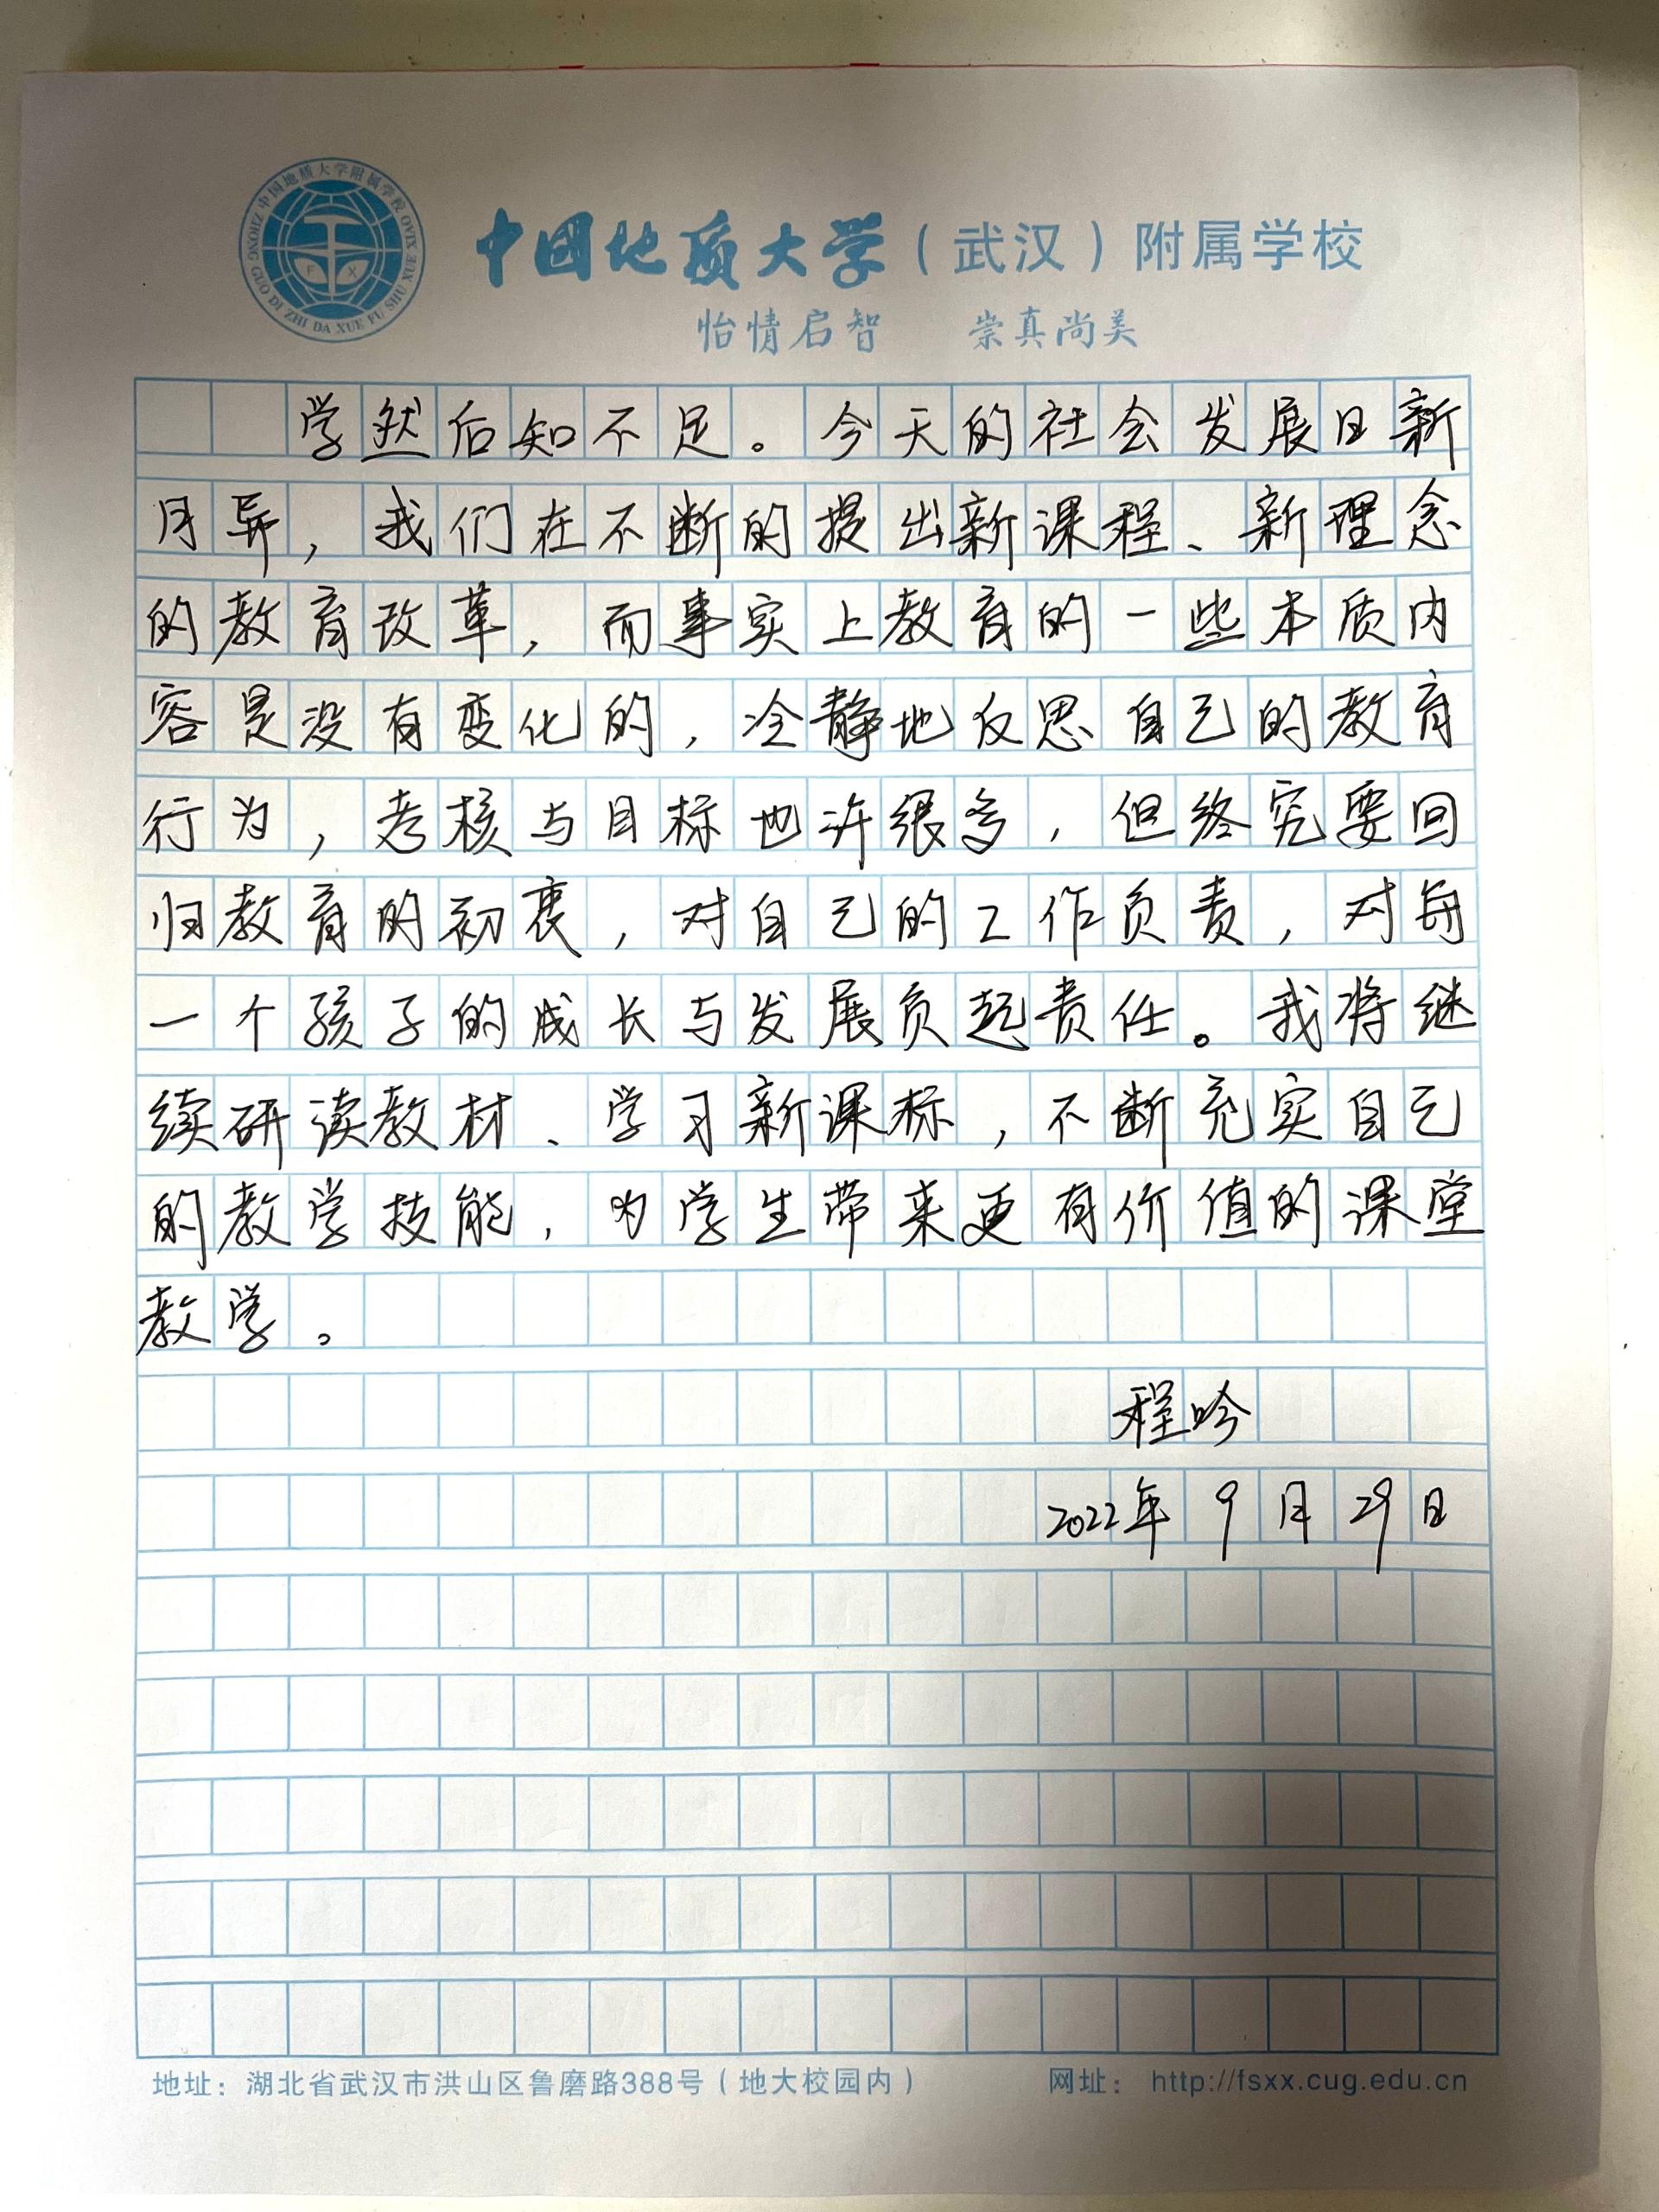 中国地质大学附属学校
ZHONG GUO DI ZHI DA XUE FU SHU XUE XIAO
F X
中国地质大学（武汉）附属学校
怡情启智 崇真尚美
学然后知不足。今天的社会发展日新
月异，我们在不断的提出新课程、新理念
的教育改革，而事实上教育的一些本质内
容是没有变化的，冷静地反思自己的教育
行为，考核与目标也许很多，但终究要回
归教育的初衷，对自己的工作负责，对每
一个孩子的成长与发展负起责任。我将继
续研读教材、学习新课标，不断充实自己
的教学技能，为学生带来更有价值的课堂
教学。
程吟
2022年9月29日
地址：湖北省武汉市洪山区鲁磨路388号（地大校园内） 网址：http://fsxx.cug.edu.cn